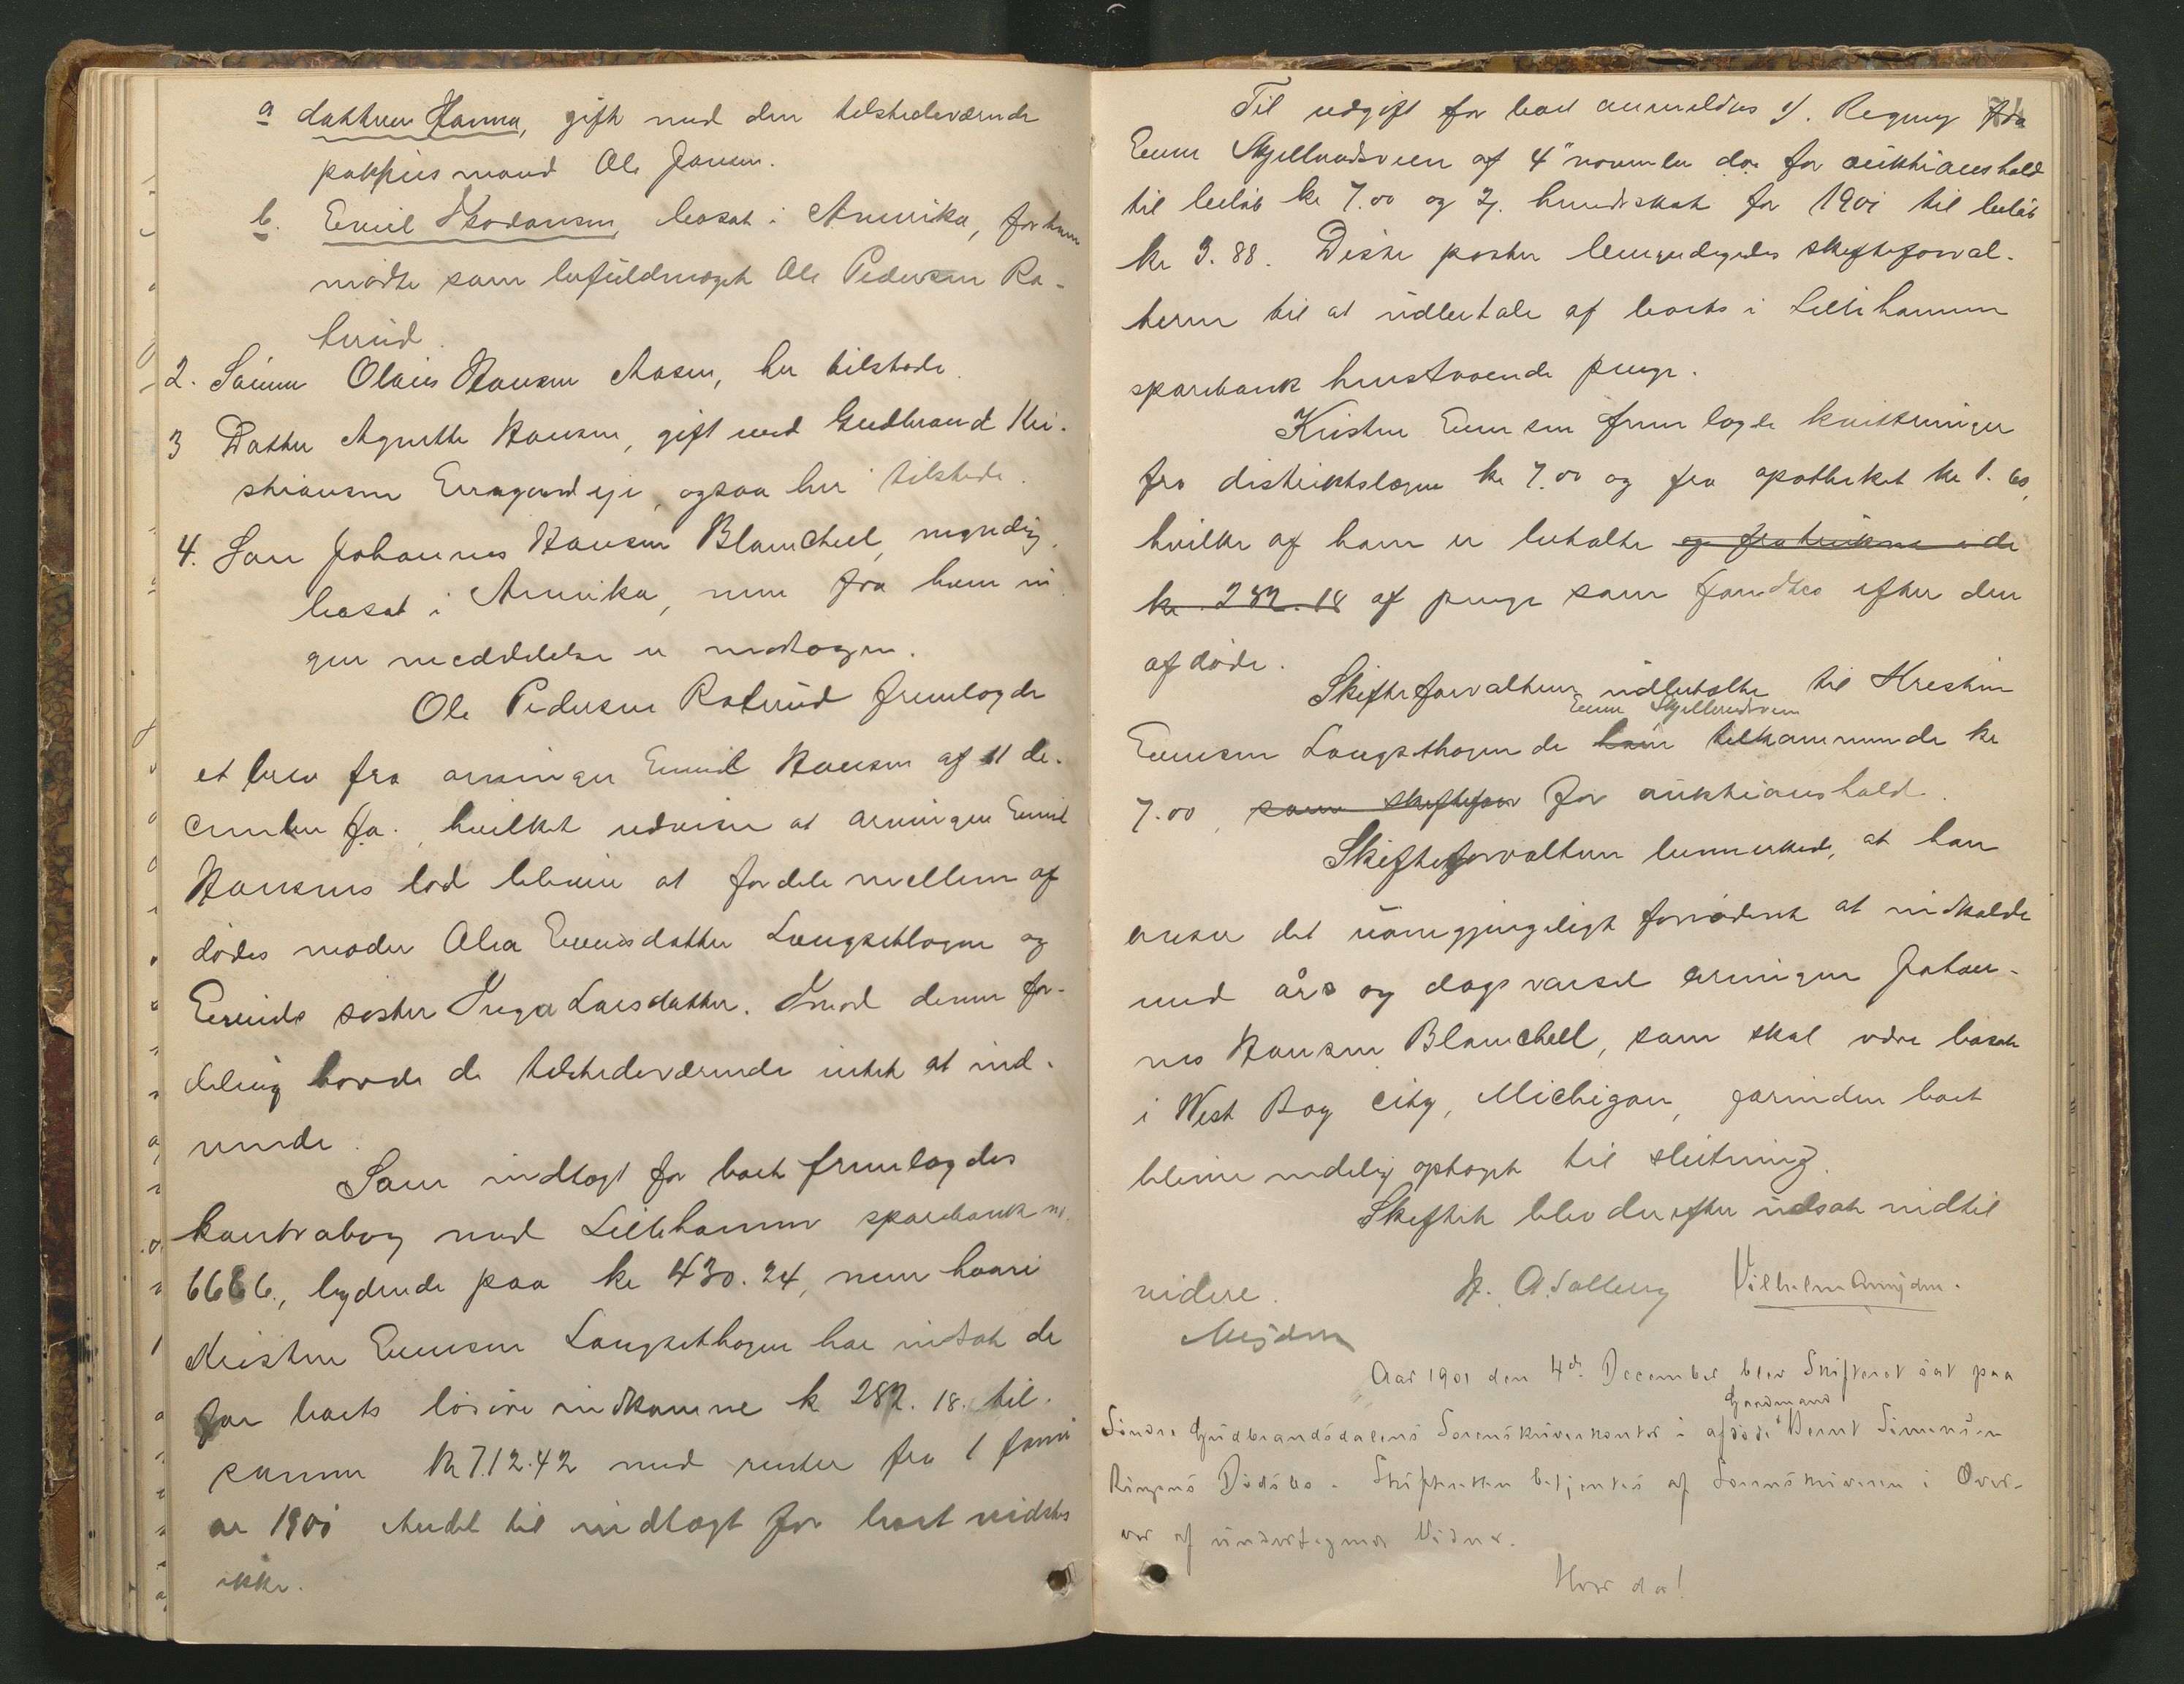 a datteren Hanna, gift med den tilstedeværende
pakhusmand Ole Jansen.
b. Emil Theodorsen, bosat i Amerika, for ham
mødte som befuldmæget Ole Pedersen Ro-
terud.
2. Sønnen Olaus Hansen Aasen, her tilstede.
3 Datter Agnethe Hansen, gift med Gudbrand Kri-
stiansen eje, ogsaa her tilstede.
4. Søn Johannes Hansen Blanchell, myndig,
bosat i Amerika, men fra ham in-
gen meddelelse er modtagen.
Ole Pedersen Roterud fremlagde
et brev fra arvingen Emil Hansen af 11 de-
cember f.a., hvilket udviser at arvingen Emil
Hansens lod bliver at fordele mellem af
dødes moder Olea Evensdatter Langsethagen og
Emils søster Inga Larsdatter. Imod denne for-
deling havde de tilstedeværende intet at ind-
vende.
Som indtægt for boet fremlagdes
kontrabog med Lillehammer sparebank no.
6686., lydende paa kr 430.24, men hvori
Kristen Evensen Langsethagen har indsat de
for boets løsøre indkomne kr 282.18. til-
sammen kr 712.42 med renter fra 1 janu
ar 1901 Andet til indtægt for boet vidstes
ikke.
Til udgift for boet anmeldtes 1/. Regning fra
Even Skjellerudsveen af 4' november d.a. for auktionshold
til beløb kr 7.00 og 2/. hundeskat for 1901 til beløb
kr 3.88. Disse poster bemyndigedes skifteforval-
teren til at udbetale af boets i Lillehammer
sparebank henstaaende penge.
Kristen Evensen fremlagde kvitteringer
fra distriktslægen kr 7.00 og fra apotheket kr 1.60,
hvilke af ham er betalte og fratrukne i de
kr. 282.18 af penge som fandtes efter den
afdøde.
Skifteforvalteren udbetalte til Kristen
Even Skjellerudsveen
Evensen Langsethagen de ham tilkommende kr
7.00, som skiftefor for auktionshold.
Skifteforvalteren bemerkede, at han
anser det uomgjængeligt fornødent at indkalde
med års og dags varsel arvingen Johan-
nes Hansen Blanchell, som skal være bosat
i West Bay City, Michigan, forinden boet
bliver endelig optaget til slutning.
Skiftet blev derefter udsat indtil
videre. H. A. Solberg Vilhelm
Aar 1901 den 4de December blev Skifteret sat paa
Gaardmand
Søndre Gudbrandsdalens Sorenskriverkontor i afdøde Bernt Simensen
Ringens Dødsbo. Skifteretten betjentes af Sorenskriveren i Over-
vær af undertegnede Vidner.
Hvor da!